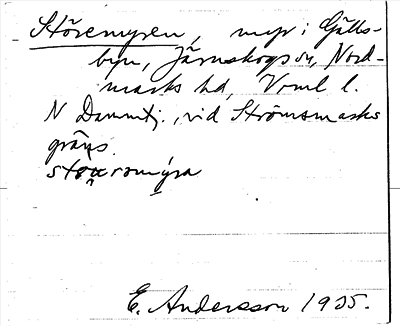 Störemyren, myr i Gälls-
byn, Järnskogs sn, Nord-
marks hd, Vrml l.
N Dammtj., vid Strömsmarks
gräns.
romy̨ra
E. Andersson 1935.